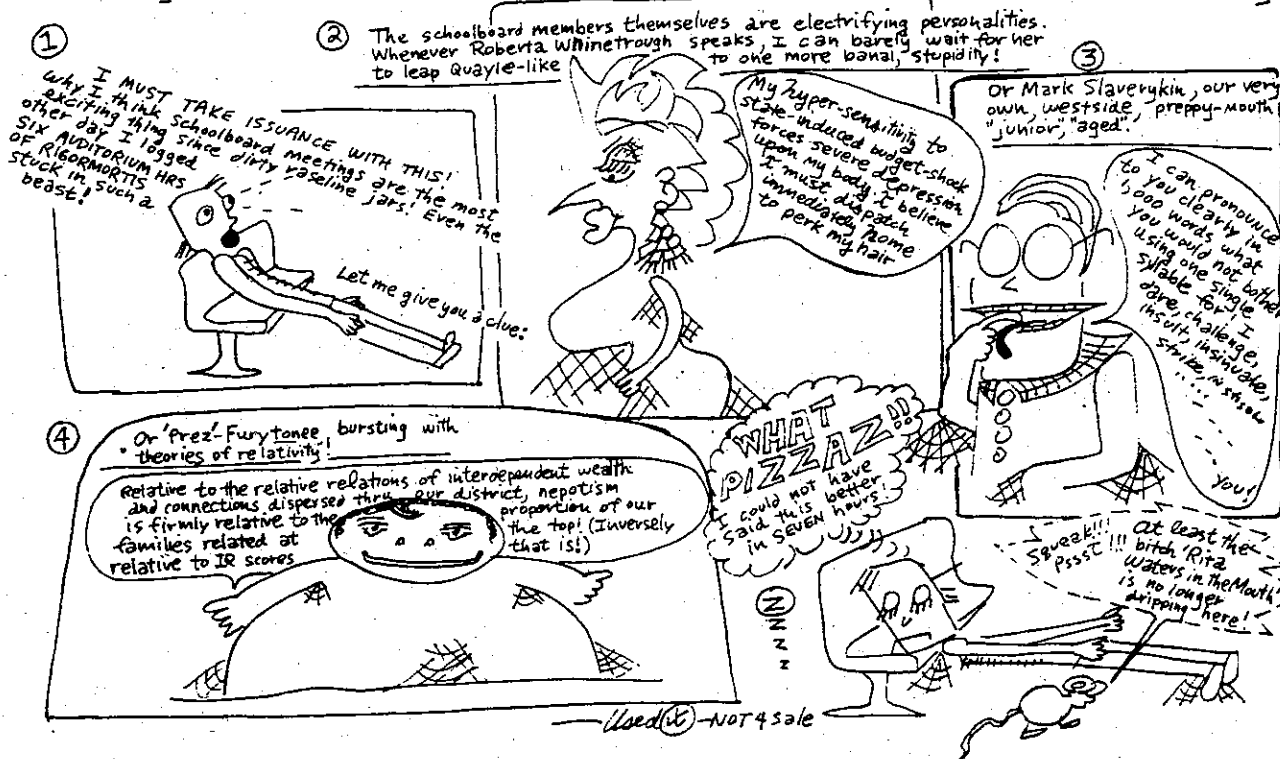 ①
I MUST TAKE ISSUANCE WITH THIS!
Why I think schoolboard meetings are the most
exciting thing since dirty vaseline jars! Even the
other day I logged
SIX AUDITORIUM HRS
OF RIGORMORTIS
stuck in such a
beast!
Let me give you a clue:
②
The schoolboard members themselves are electrifying personalities.
Whenever Roberta Whinetrough speaks, I can barely wait for her
to leap Quayle-like to one more banal, stupidity!
My hyper-sensitivity to
state-induced budget-shock
forces severe depression
upon my body. I believe
I must dispatch
immediately home
to perk my hair
③
Or Mark Slaverykin, our very
own, westside, preppy-mouth
"junior", "aged".
I can pronounce
to you clearly in
1,000 words what
you would not bother
using one single
sylable for, I
dare, challenge,
insult, insinuate,
strike,
you!
④
Or 'Prez'-Furytonee bursting with
theories of relativity!
Relative to the relative relations of interdependent wealth
and connections dispersed thru our district, nepotism
is firmly relative to the proportion of our
families related at the top! (Inversely
relative to IQ scores that is!)
WHAT
PIZZAZ!!
I could not have
said this better
in SEVEN hours!
Ⓝ
N
z
z
Squeak!!!
Pssst!!!
at least the
bitch 'Rita
Waters in the Mouth'
is no longer
dripping here!
Used it - NOT 4 sale